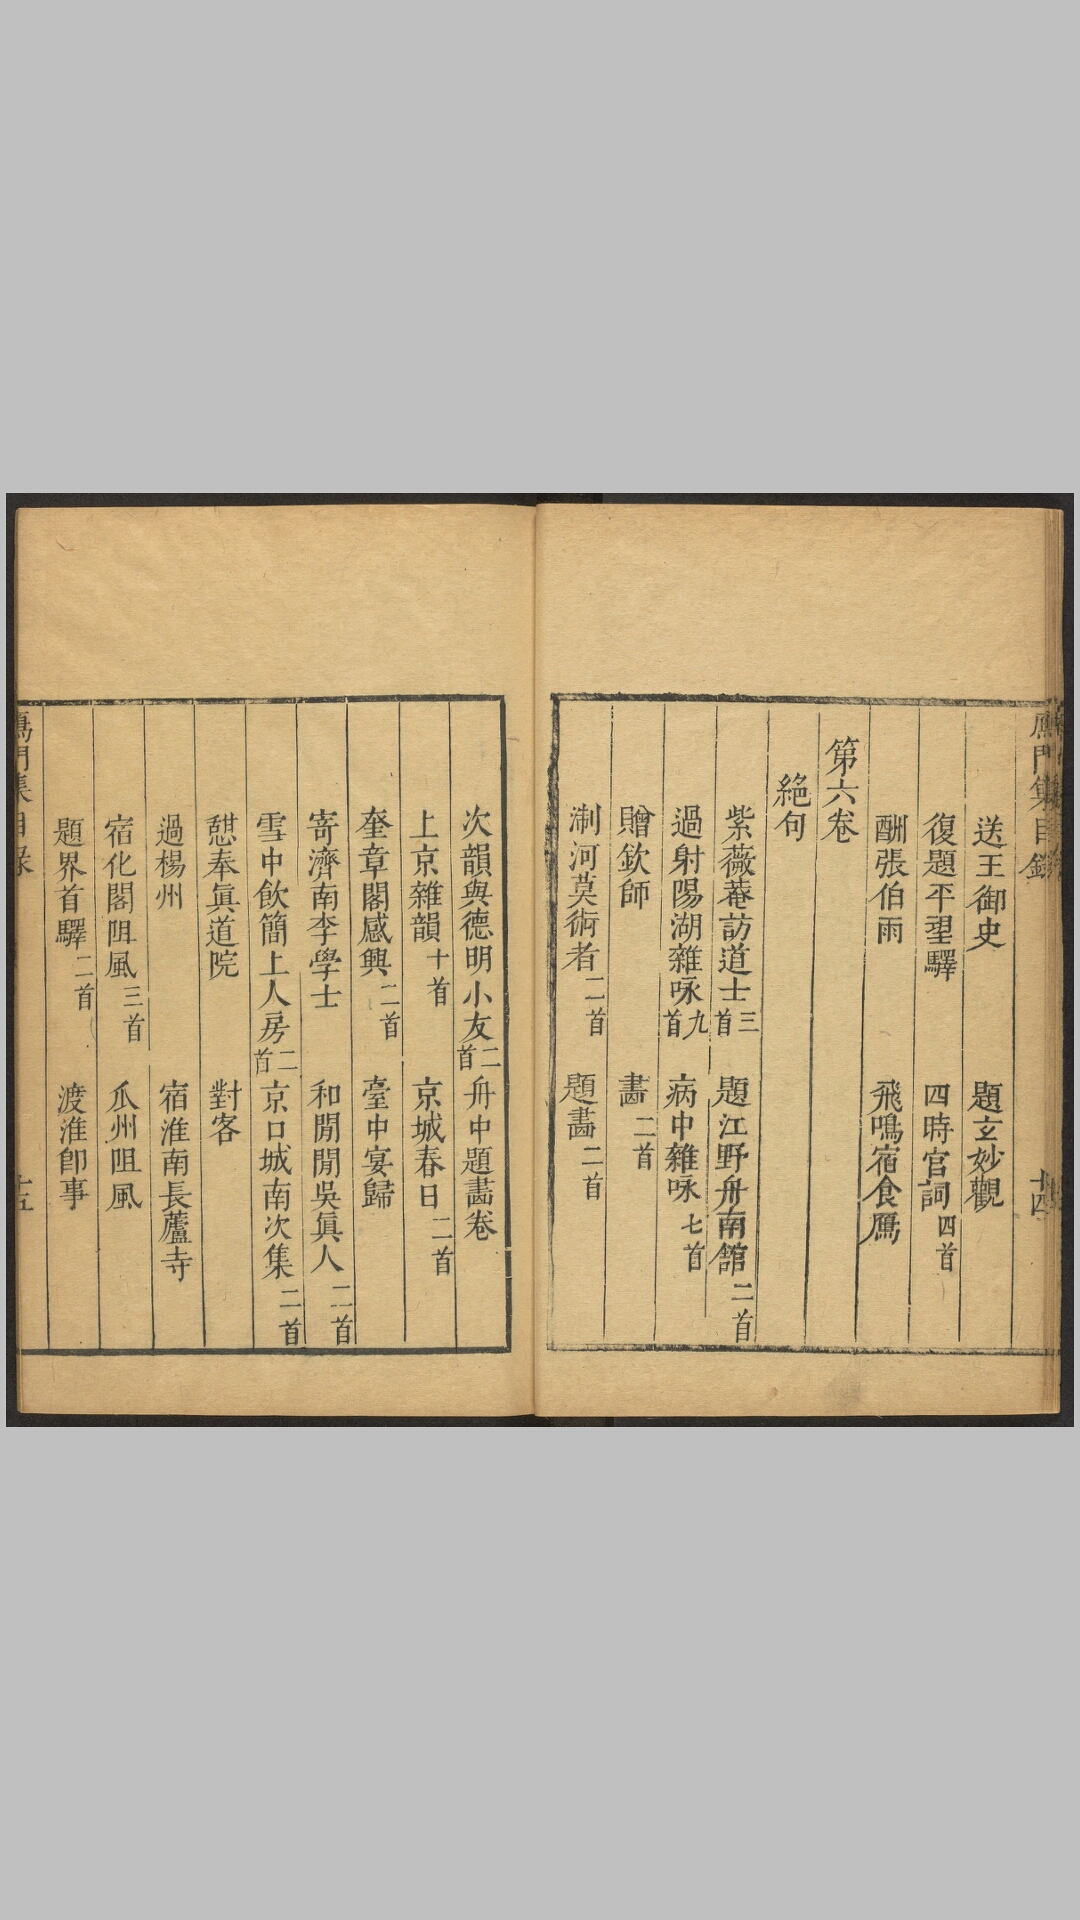 鴈門集目錄 十四
送王御史 題玄妙觀
復題平望驛 四時宮詞四首
酬張伯雨 飛鳴宿食鴈
第六卷
絕句
紫薇菴訪道士三首 題江野舟南舘二首
過射陽湖雜咏九首 病中雜咏七首
贈欽師 畵二首
淛河莫術者二首 題畵二首
次韻與德明小友二首 舟中題畵卷
上京雜韻十首 京城春日二首
奎章閣感興二首 臺中宴歸
寄濟南李學士 和閒閒吳眞人二首
雪中飲簡上人房二首 京口城南次集二首
憇奉眞道院 對客
過楊州 宿淮南長蘆寺
宿化閣阻風三首 瓜州阻風
題界首驛二首 渡淮卽事
鴈門集目錄 十五